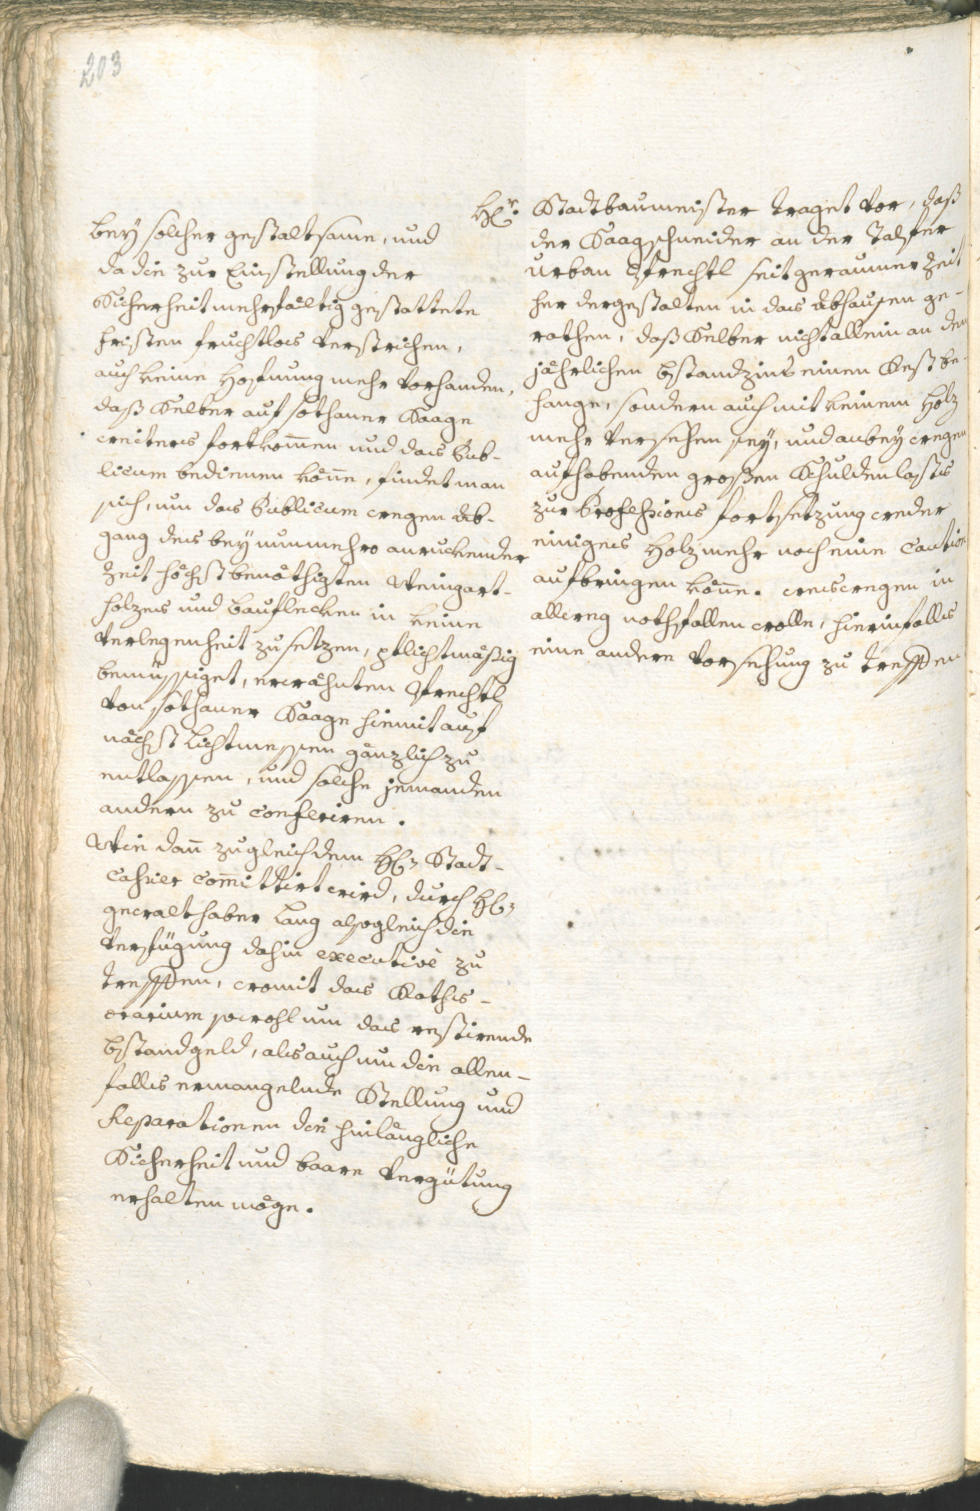 203
Bey solcher gestaltsame, und
da die zur Einstellung der
Sicherheit mehrfältig gestattete
fristen fruchtlos verstrichen,
auch keine Hofnung mehr vorhanden,
daß Selber auf sothaner Saage
weiters fortkom̄en und das Pub-
licum bedienen kön̄e, findet man
sich, um das Publicum wegen Ab-
gang des bey nunmehro anruckender
Zeit höchst benöthigten Weingart-
holzes und Bauflecken in keine
Verlegenheit zu setzen, pflichtmäßig
bemüssiget, erwähnten Pfrechtl
von sothaner Saage hiemit auf
nächst Lichtmessen gänzlich zu
entlassen, und solche jemanden
andern zu Conferiren.
Wie dan̄ zugleich dem H: Stadt-
Cassier Com̄ittirt wird, durch H:
gewalthaber Lang alsogleich die
Verfügung dahin executivè zu
treffen, womit das Raths-
ærarium sowohl um das restirende
Bstandgeld, als auch um die allen-
falls ermangelnde Stellung und
Reparationen die hinlängliche
Sicherheit und baare Vergütung
erhalten möge.
H:r Stadtbaumeister traget vor, daß
der Saagschneider an der Talfer
Urban Pfrechtl seit geraumer Zeit
her dergestalten in das Abhausen ge-
rathen, daß Selber nicht allein an dem
jährlichen Bstandzins einen Rest be-
hange, sondern auch mit keinem Holz
mehr versehen sey, und anbey wegen
aufhabenden großen Schuldenlasts
zur Professions fortsetzung weder
einiges Holz mehr noch eine Caution
aufbringen kön̄e. weswegen in
allweg nothfallen wolle, hierinfalls
eine andere Vorsehung zu treffen